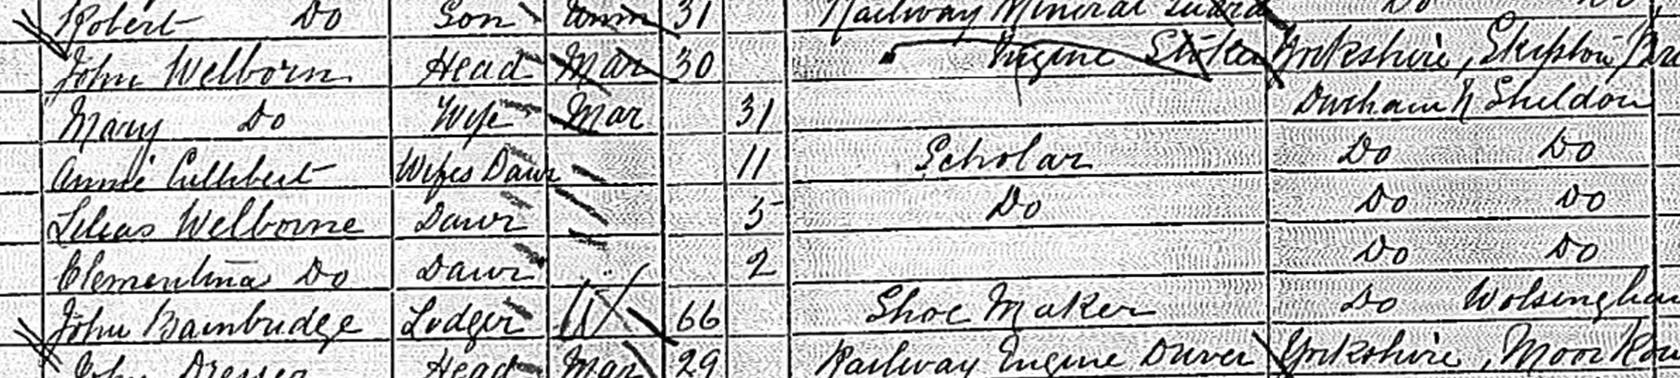 Robert Do Son Unm 31 Railway Mineral Guard Do Do
John Welborn Head Mar 30 Engine Stoker Yorkshire, Skipton
Mary Do Wife Mar 31 Durham N Sheldon
Annie Cuthbert Wifes Daur 11 Scholar Do Do
Lilias Welborne Daur 5 Do Do Do
Clementina Do Daur 2 Do Do
John Bainbridge Lodger 66 Shoe Maker Do Wolsingham
John Dresser Head Mar 29 Railway Engine Driver Yorkshire, Moor